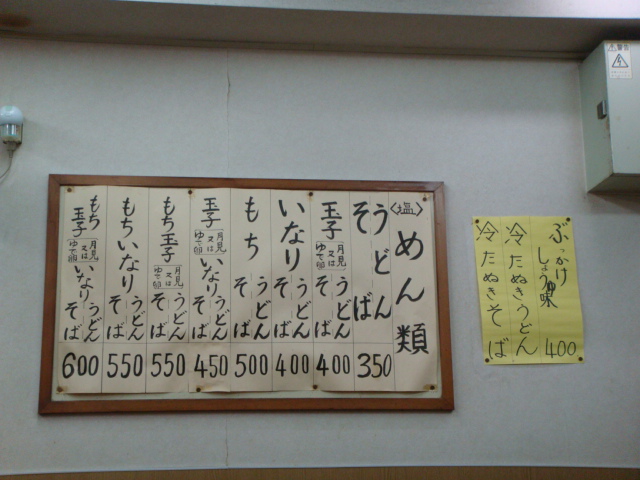 めん類
〈塩〉
うどん
そば
350
玉子
月見
又は
ゆで卵
うどん
そば
400
いなり
うどん
そば
400
もち
うどん
そば
500
玉子
月見
又は
ゆで卵
いなり
うどん
そば
450
もち玉子
月見
又は
ゆで卵
うどん
そば
550
もちいなり
うどん
そば
550
もち
玉子
月見
又は
ゆで卵
いなり
うどん
そば
600
ぶっかけ
しょうゆ味
400
冷たぬきうどん
冷たぬきそば